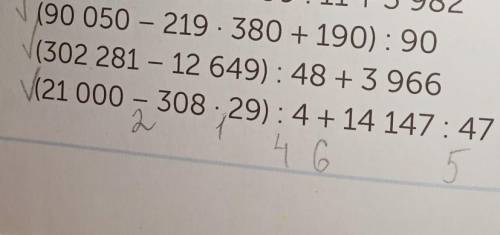 11 + 3 982
√(90 050 – 219 · 380 + 190) : 90
√(302 281 – 12 649) : 48 + 3 966
√(21 000 – 308 · 29) : 4 + 14 147 : 47
2 1 4 6 5